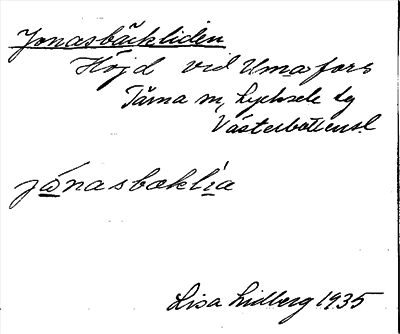 Jonasbäckliden
Höjd vid Umafors
Tärna sn, Lycksele lg
Västerbottensl
jónasbæklía
Lisa Lidberg 1935